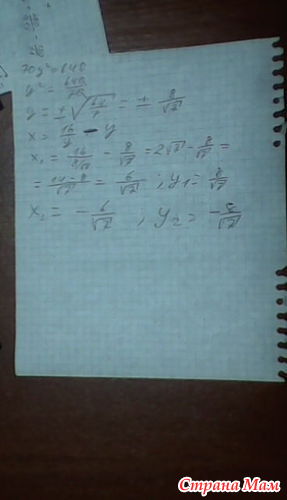 70y² = 640
y² = 640/70
y = ± √(64/7) = ± 8/√7
x = 16/y - y
x₁ = 16/(8/√7) - 8/√7 = 2√7 - 8/√7 =
= (14-8)/√7 = 6/√7 ; y₁ = 8/√7
x₂ = - 6/√7 , y₂ = -8/√7
Страна Мам